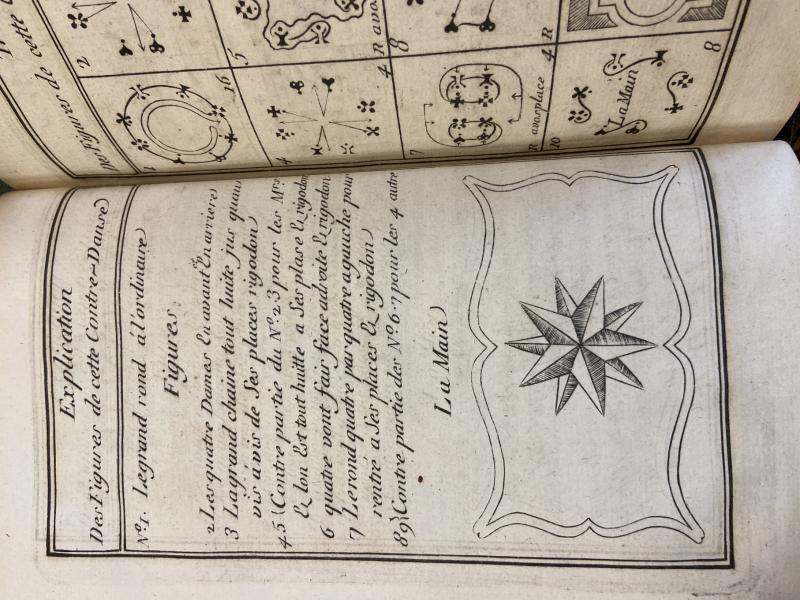 Explication
Des Figures de cette Contre-Danse
N.º1. Legrand rond álordinaire
Figures
2 Les quatre Dames En avant En arriere
3 Lagrand chaine tout huite jus quau
vis ávis de Ses places rigodon
45 Contre partie du Nº.23 pour les M.rs
& lon Est tout huitte a Ses plase & rigodon
6 quatre vont fair face adroite & rigodon
7 Lerond quatre par quatre aguuche pour
rentré a Ses places & rigodon
89 Contre partie des Nº6.7 pour les 4 autre
La Main
Des Figures de cette
2
5
4 R avos
8
4 R
1
16
4
4
7
R avosplace
8
10
La Main
8